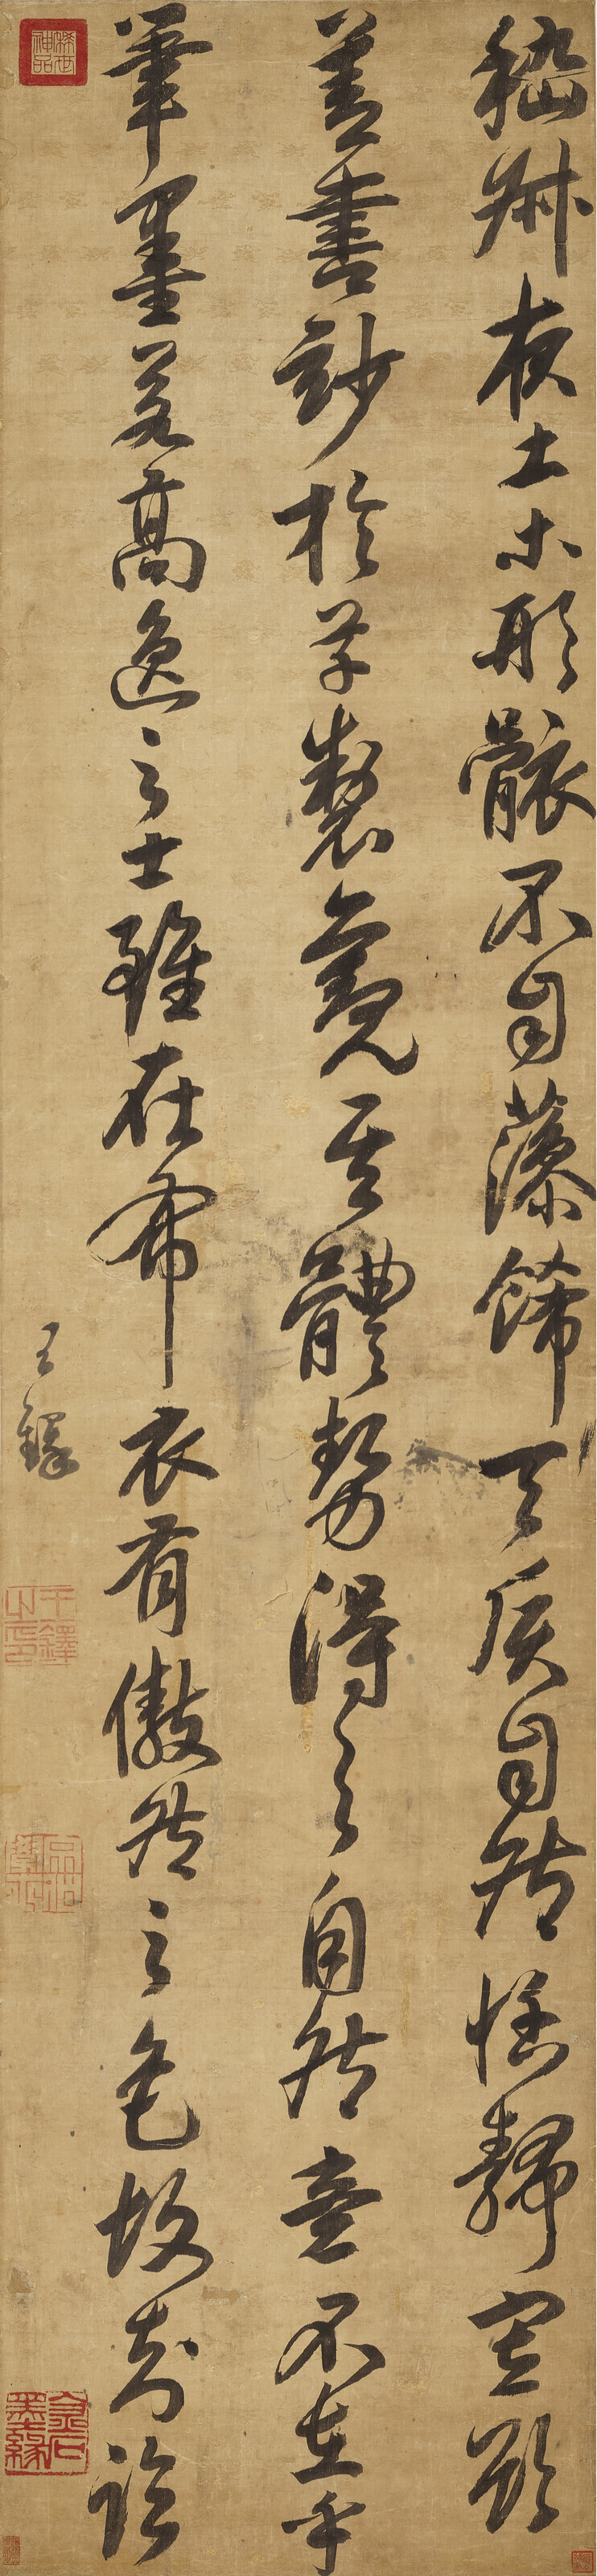 嵇叔夜土木形骸不自藻飾天質自然恬靜寡欲
善書妙於草製觀其體勢得之自然意不在乎
筆墨若高逸之士雖在布衣有傲然之色故知論
王鐸
稀世神品
王鐸之印
金石墨緣